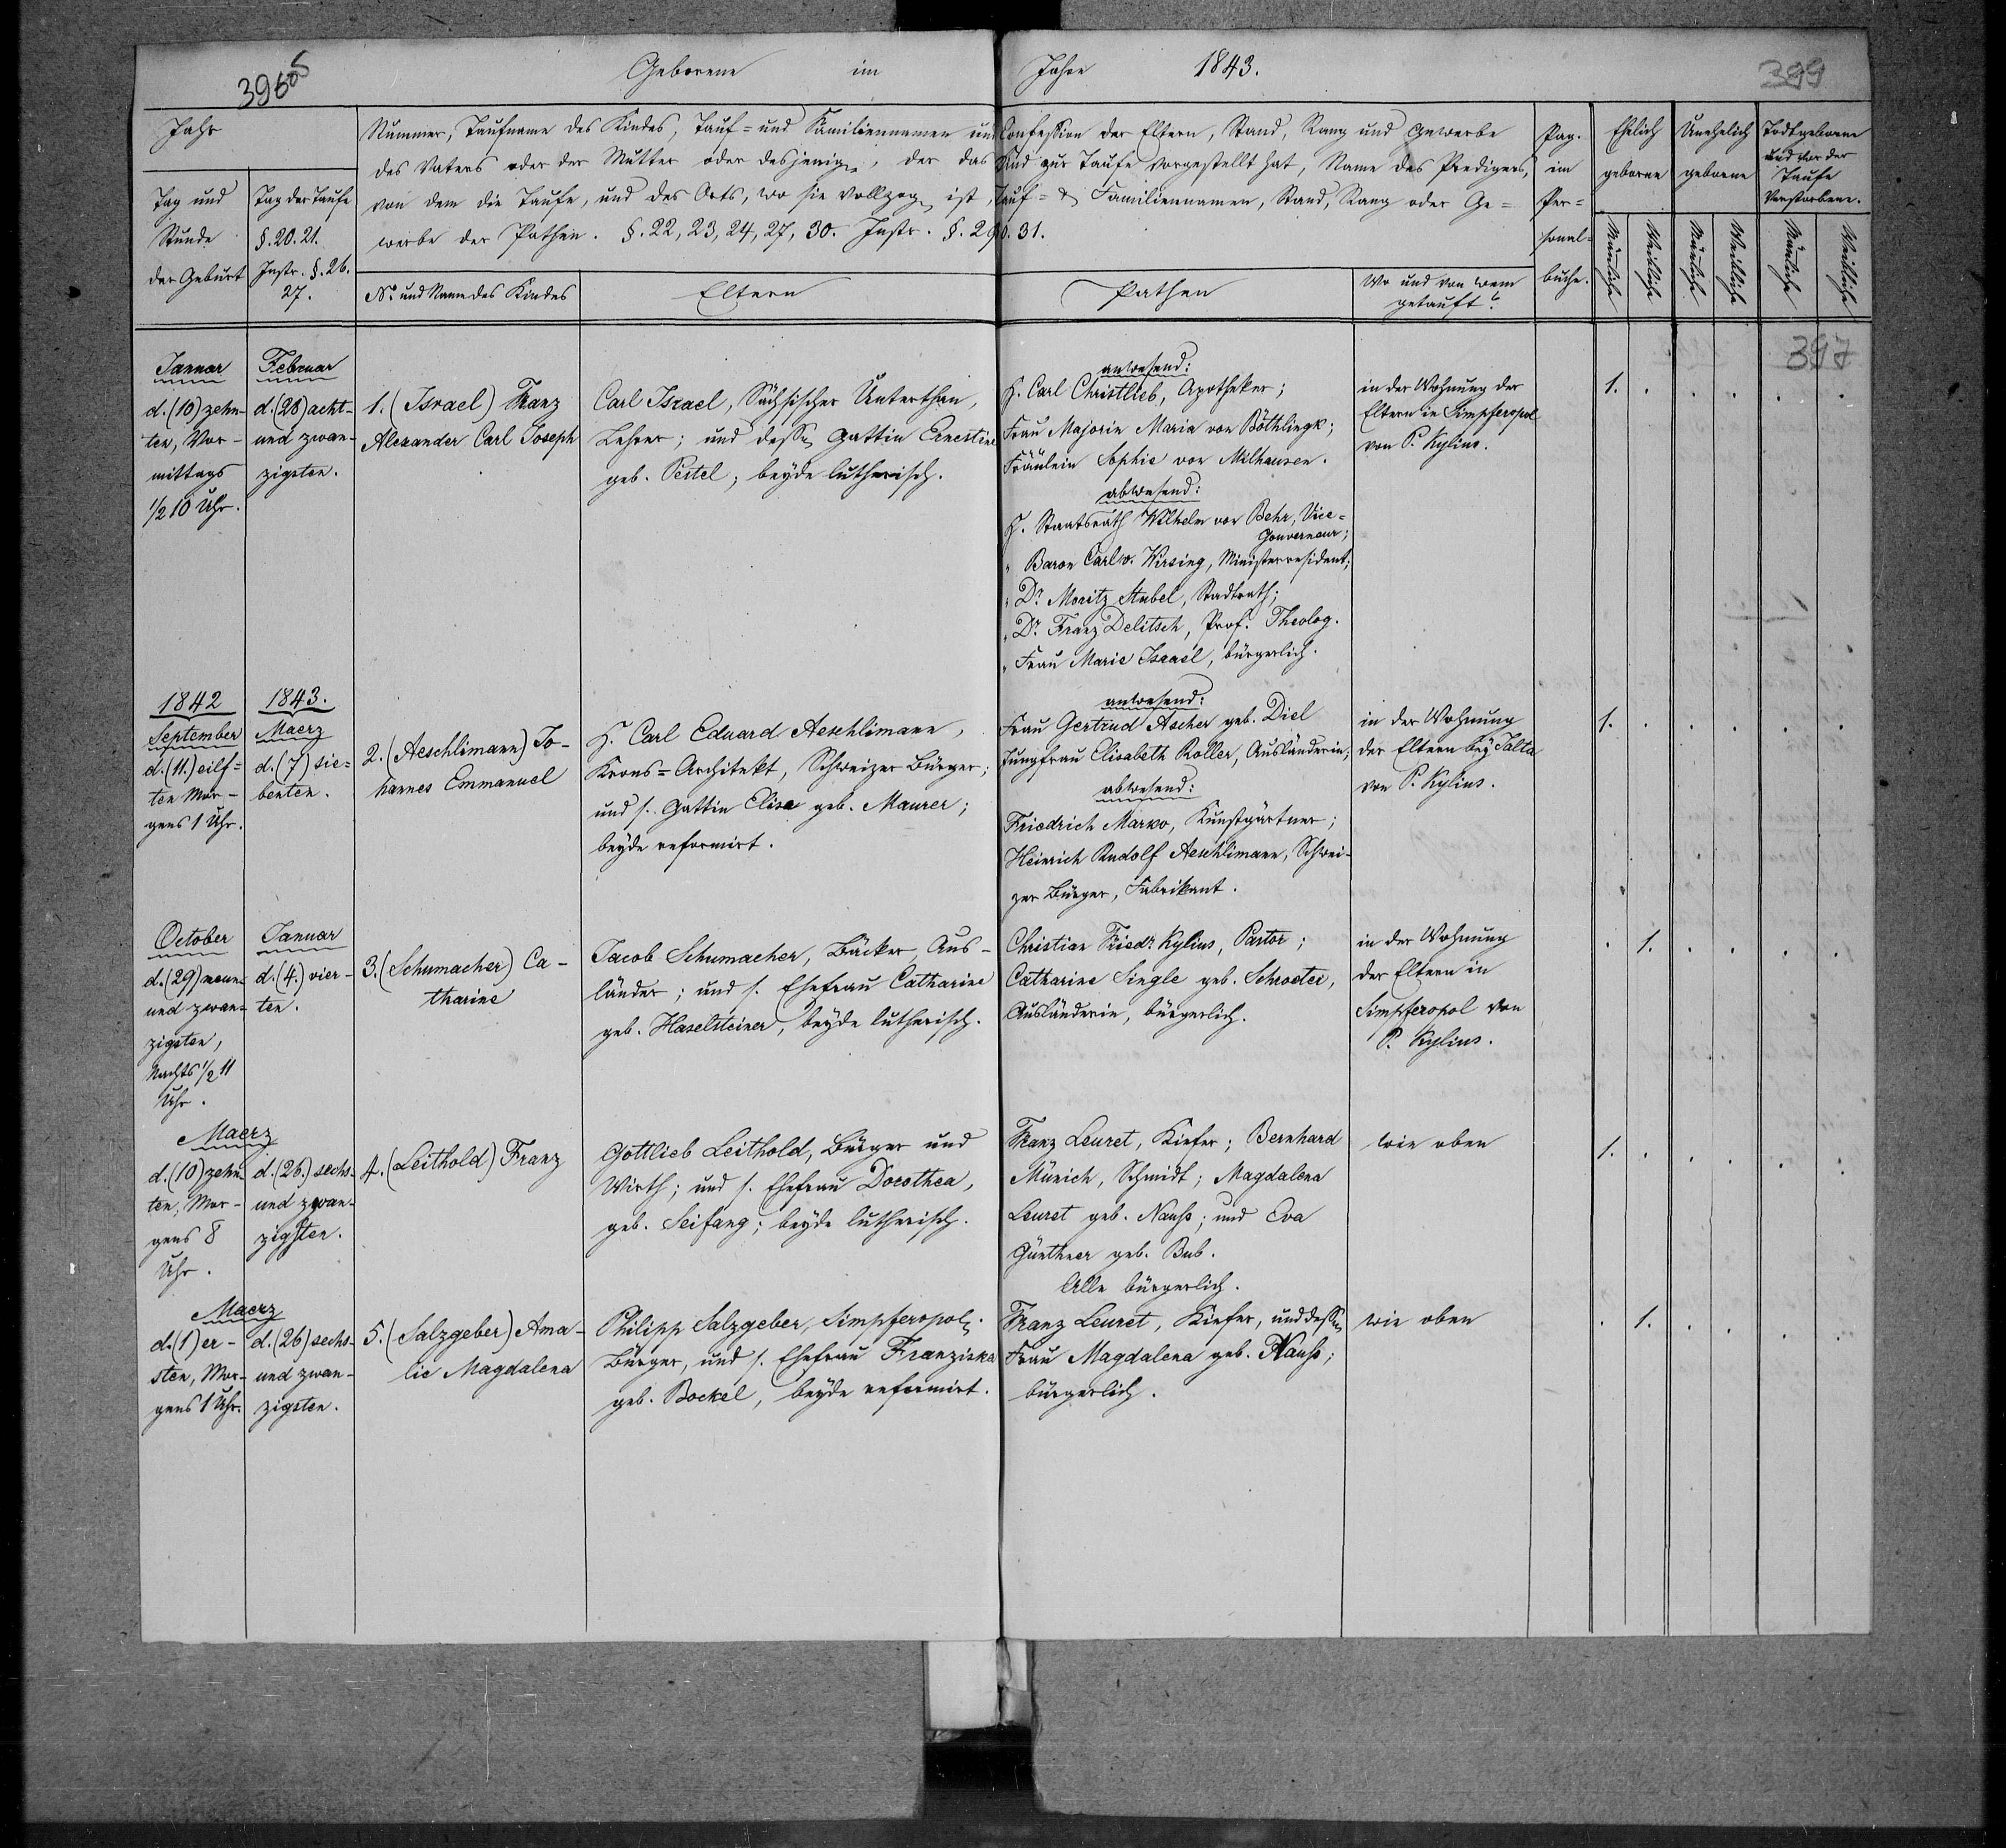 Geborene im Jahre 1843.
399
Jahr
Tag und
Stunde
der Geburt
Tag der Taufe
§. 20. 21.
Instr. §. 26.
27.
Nummer, Taufname des Kindes, Tauf= und Familiennamen und Confession der Eltern, Stand, Rang und Gewerbe
des Vaters oder der Mutter oder desjenigen, der das Kind zur Taufe vorgestellt hat, Name des Predigers,
von dem die Taufe, und des Orts, wo sie vollzogen ist, Tauf= & Familiennamen, Stand, Rang oder Ge=
werbe der Pathen. §. 22, 23, 24, 27, 30. Instr. §. 29. 31.
No. und Name des Kindes
Eltern
Pathen
Wo und von wem
getauft?
Pag.
im
Per=
sonal=
buche.
Ehelich
geborne
Unehelich
geborne
Todtgeborne
und vor der
Taufe
Verstorbene.
Männliche
Weibliche
Männliche
Weibliche
Männliche
Weibliche
397
Januar
d. (10) zehn-
ten, Vor-
mittags
1/2 10 Uhr.
Februar
d. (28) acht-
und zwan-
zigsten.
1. (Israel) Franz
Alexander Carl Joseph
Carl Israel, Sächsischer Unterthan,
Lehrer; und dessen Gattin Ernestine
geb. Pestel; beyde lutherisch.
anwesend:
H. Carl Christlieb, Apotheker;
Frau Majorin Maria von Böthlingk;
Fräulein Sophie von Milhausen.
abwesend:
H. Staatsrath Wilhelm von Behr, Vice=
Gouverneur;
" Baron Carl v. Wirsing, Ministerresident;
" Dr. Moritz Stubel, Stadtrath;
" Dr. Franz Delitsch, Prof. Theolog.
" Frau Marie Israel, bürgerlich.
in der Wohnung der
Eltern in Simpferopol
von P. Kylius.
1. . . . . .
1842
September
d. (11.) eilf=
ten Mor-
gens 1 Uhr.
1843.
Maerz
d. (7) sie=
benten.
2. (Aeschlimann) Jo-
hannes Emmanuel
H. Carl Eduard Aeschlimann,
Krons=Architekt, Schweizer Bürger;
und s. Gattin Elise geb. Maurer;
beyde reformirt.
anwesend:
Frau Gertrud Ascher geb. Diel
Jungfrau Elisabeth Roller, Ausländerin;
abwesend:
Friedrich Marko, Kunstgärtner;
Heinrich Rudolf Aeschlimann, Schwei-
zer Bürger, Fabrikant.
in der Wohnung
der Eltern bey Jalta
von P. Kylius.
1. . . . . .
October
d. (29) neun-
und zwan-
zigsten,
Nachts 1/2 11
Uhr.
Januar
d. (4.) vier-
ten.
3. (Schumacher) Ca-
tharine
Jacob Schumacher, Bäcker, Aus-
länder; und s. Ehefrau Catharine
geb. Haselsteiner, beyde lutherisch.
Christian Friedr. Kylius, Pastor;
Catharine Single geb. Schroeter,
Ausländerin, bürgerlich.
in der Wohnung
der Eltern in
Simpferopol von
P. Kylius.
. 1. . . . .
Maerz
d. (10) zehn-
ten, Mor-
gens 8
Uhr.
d. (26.) sechs-
und zwan-
zigsten.
4. (Leithold) Franz
Gottlieb Leithold, Bürger und
Wirth; und s. Ehefrau Dorothea,
geb. Seifang; beyde lutherisch.
Franz Leuret, Kiefer; Bernhard
Münich, Schmidt; Magdalena
Leuret geb. Nauß; und Eva
Günthner geb. Bub.
Alle bürgerlich.
wie oben
1. . . . . .
Maerz
d. (1) er-
sten, Mor-
gens 1 Uhr.
d. (26) sechs-
und zwan-
zigsten.
5. (Salzgeber) Ama-
lie Magdalena
Philipp Salzgeber, Simpferopol.
Bürger, und s. Ehefrau Franziska
geb. Bockel, beyde reformirt.
Franz Leuret, Kiefer, und dessen
Frau Magdalena geb. Nauß;
bürgerlich.
wie oben
. 1. . . . .